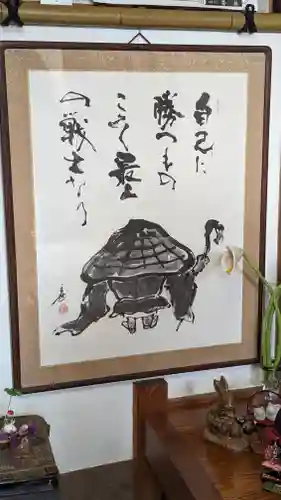 自己に
勝つもの
こそ最上
の戦士なる